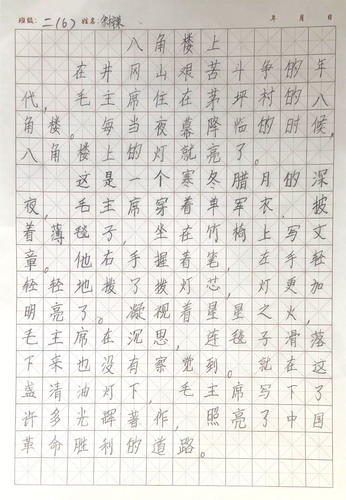 班级：二（6）姓名： 年 月 日
八角楼上
在井冈山艰苦斗争的年
代，毛主席住在茅坪村的八
角楼。每当夜幕降临的时候，
八角楼上的灯就亮了。
这是一个寒冬腊月的深
夜，毛主席穿着单军衣，披
着薄毯子，坐在竹椅上写文
章。他右手握着笔，左手轻
轻轻地拨了拨灯芯，灯更加
明亮了。凝视着星星之火，
毛主席在沉思，连毯子滑落
下来也没有察觉到。就在这
盏清油灯下，毛主席写下了
许多光辉著作，照亮了中国
革命胜利的道路。